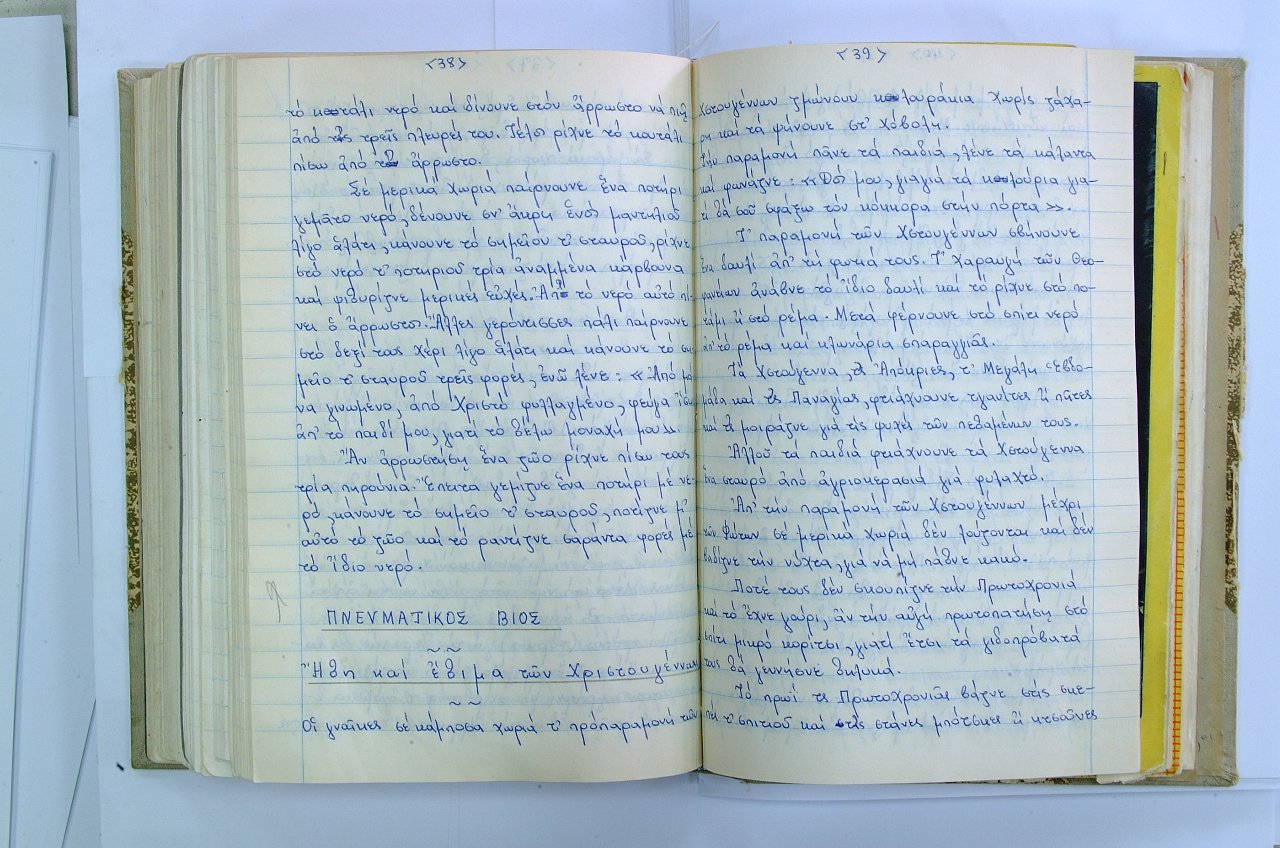 <38>
τό κουτάλι νερό καί δίνουνε στόν ἄρρωστο νά πιῆ
ἀπό τίς τρεῖς πλευρές του. Τέλος ρίχνε τό κουτάλι
πίσω ἀπό τὸ ἄρρωστο.
Σέ μερικά χωριά παίρνουνε ἕνα ποτήρι
γεμᾶτο νερό, δένουνε σν' ἄκρη ἑνός μαντηλιοῦ
λίγο ἁλάτι, κάνουνε τό σημεῖον τ' σταυροῦ, ρίχνε
στό νερό τ' ποτηριοῦ τρία ἀναμμένα κάρβουνα
καί ψιθυρίζνε μερικές εὐχές. Ἀπ' τό νερό αὐτό πί-
νει ὁ ἄρρωστος. Ἄλλες γερόντισσες πάλι παίρνουνε
στό δεξί τους χέρι λίγο ἁλάτι καί κάνουνε τό ση-
μεῖο τ' σταυροῦ τρεῖς φορές, ἐνῶ λένε: « Ἀπό μα
να γινωμένο, ἀπό Χριστό φυλλαγμένο, φεύγα
ἀπ' τό παιδί μου, γιατί τό θέλω μοναχή μου».
Ἄν ἀρρωστήση ἕνα ζῶο ρίχνε πίσω τους
τρία πηρούνια. Ἔπειτα γεμίζνε ἕνα ποτήρι μέ νε-
ρό, κάνουνε τό σημεῖο τ' σταυροῦ, ποτίζνε μ'
αὐτό τό ζῶο καί τό ραντίζνε σαράντα φορές μέ
τό ἴδιο νερό.
ΠΝΕΥΜΑΤΙΚΟΣ ΒΙΟΣ
~ ~
Ἤθη καί ἔθιμα τῶν Χριστουγέννων
~ ~
Οἱ γναῖκες σέ κάμποσα χωριά τ' πρόπαραμονή τῶν
<39>
Χστουγέννων ζμώνουν κουλουράκια χωρίς ζάχα-
ρη καί τά ψήνουνε στ' χόβολη.
Τήν παραμονή πᾶνε τά παιδιά, λένε τά κάλαντα
καί φωνάζνε: « Δῶ μου, γιαγιά τά κουλούρια για-
τί θά σοῦ σφάξω τόν κόκκορα στην πόρτα ».
Τ' παραμονή τῶν Χστουγέννων σβήνουνε
ἕνα δαυλί ἀπ' τή φωτιά τους. Τ' χαραυγή τῶν Θεο-
φανείων ἀνάβνε τό ἴδιο δαυλί καί τό ρίχνε στό πο-
τάμι ἤ στό ρέμα. Μετά φέρνουνε στό σπίτι νερό
ἀπ' τό ρέμα καί κλωνάρια σπαραγγιᾶς.
Τά Χστούγεννα, τς Ἀπόκριες, τ' Μεγάλη Ἑβδο-
μάδα καί τς Παναγίας, φτιάχνουνε τγανίτες ἤ πῆτες
καί τς μοιράζνε γιά τίς ψυχές τῶν πεθαμένων τους.
Ἀλλοῦ τά παιδιά φκιάχνουνε τά Χστούγεννα
ἕνα σταυρό ἀπό ἀγριοκερασιά γιά φυλαχτό.
Ἀπ' τήν παραμονή τῶν Χστουγέννων μέχρι
τῶν Φώτων σέ μερικά χωριά δέν λούζονται καί δέν
βαδίζνε τήν νύχτα, γιά νά μή πάθνε κακό.
Ποτέ τους δέν σκουπίζνε τήν Πρωτοχρονιά
καί τό ἔχνε γούρι, ἄν τήν αὐγή πρωτοπατήση στό
σπίτι μικρό κορίτσι, γιατί ἔτσι τά γιδοπρόβατά
τους θά γεννήσνε θηλυκά.
Τό πρωί τς Πρωτοχρονιᾶς βάζνε στίς σκε-
πές τ' σπιτιοῦ καί στίς στάνες μπότσκες ἤ κτσοῦνες